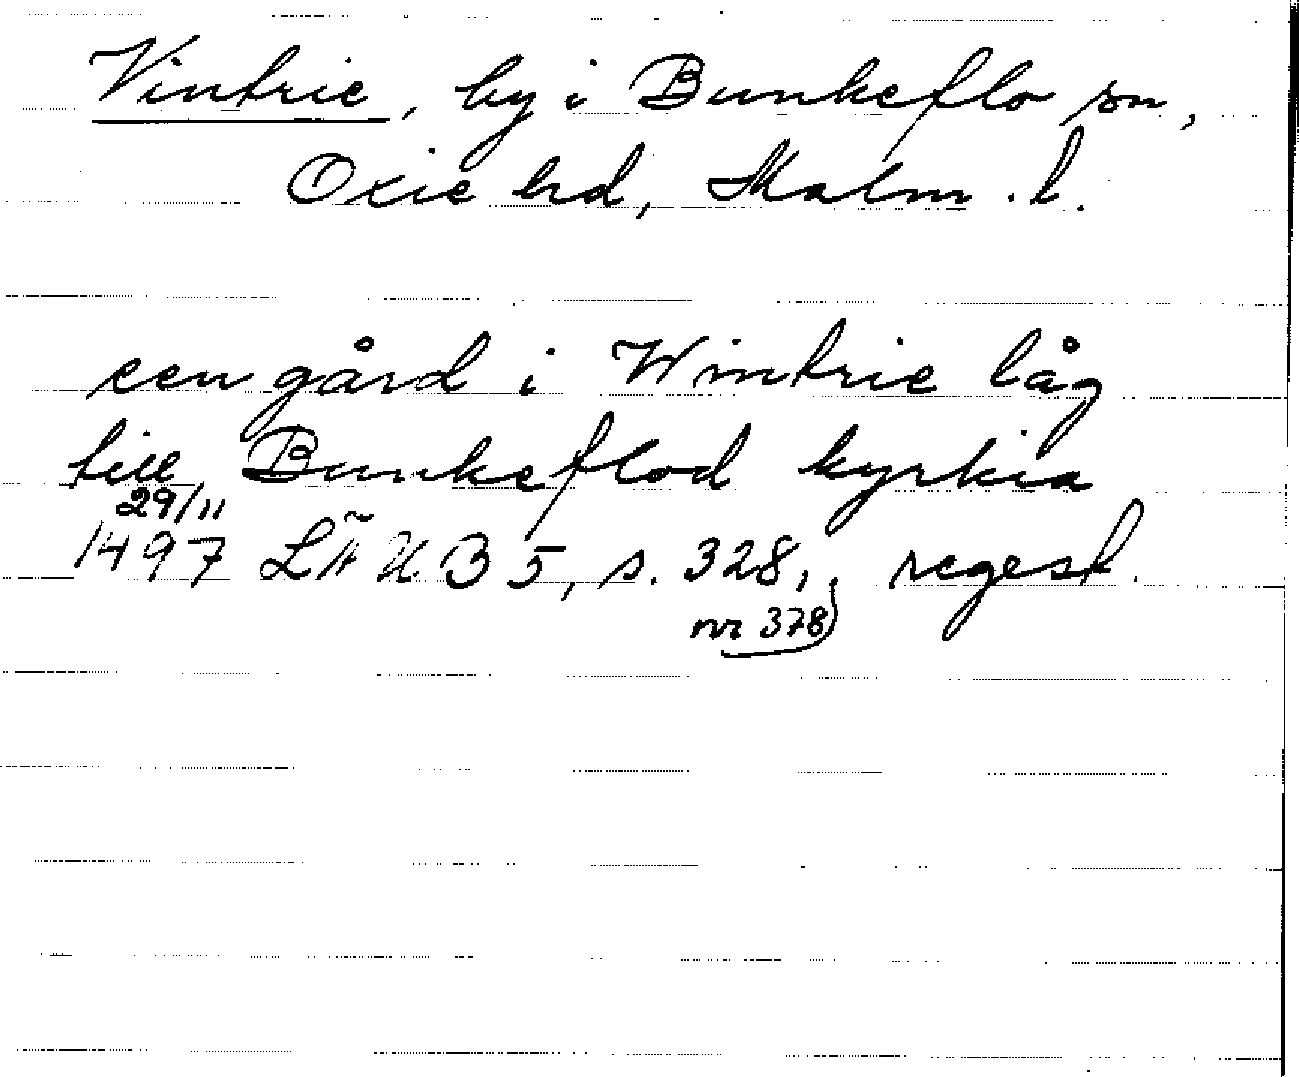 Vintrie, by i Bunkeflo sn,
Oxie hd, Malm. l.
een gård i Wintrie låg
till Bunkeflod kyrkia
29/11
1497 LÄUB 5, s. 328, regest.
nr 378)